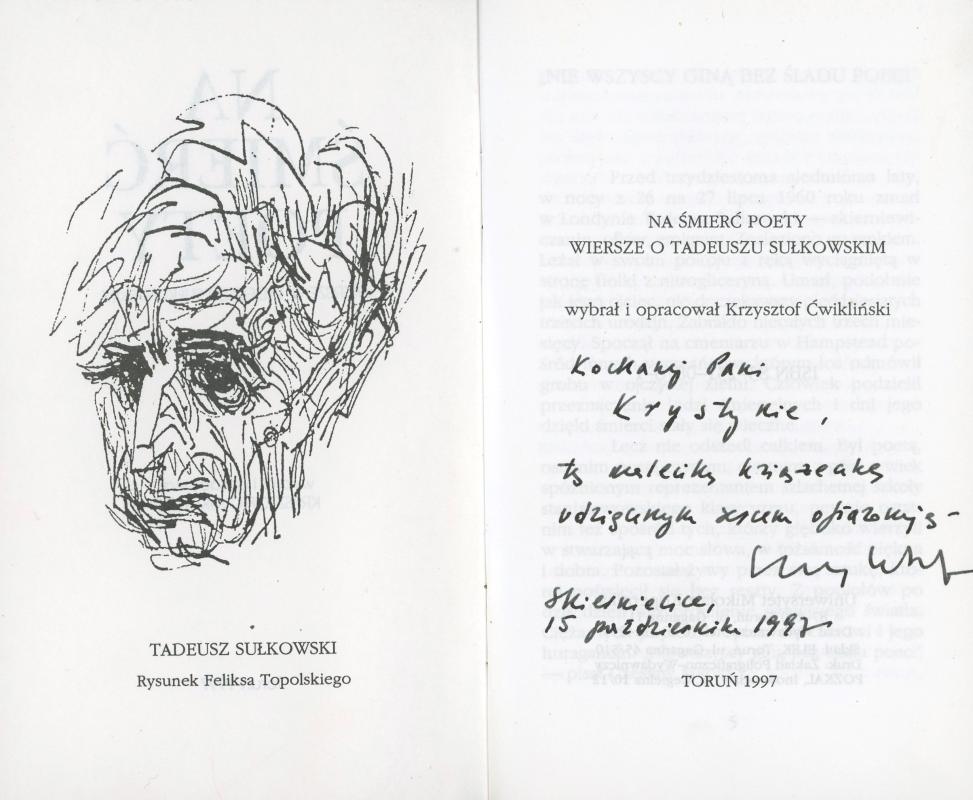 TADEUSZ SUŁKOWSKI
Rysunek Feliksa Topolskiego
NA ŚMIERĆ POETY
WIERSZE O TADEUSZU SUŁKOWSKIM
wybrał i opracował Krzysztof Ćwikliński
Kochanej Pani
Krystynie,
tę maleńką książeczkę
wdzięcznym sercem ofiarowuję –
Skierniewice,
15 października 1997 r.
TORUŃ 1997